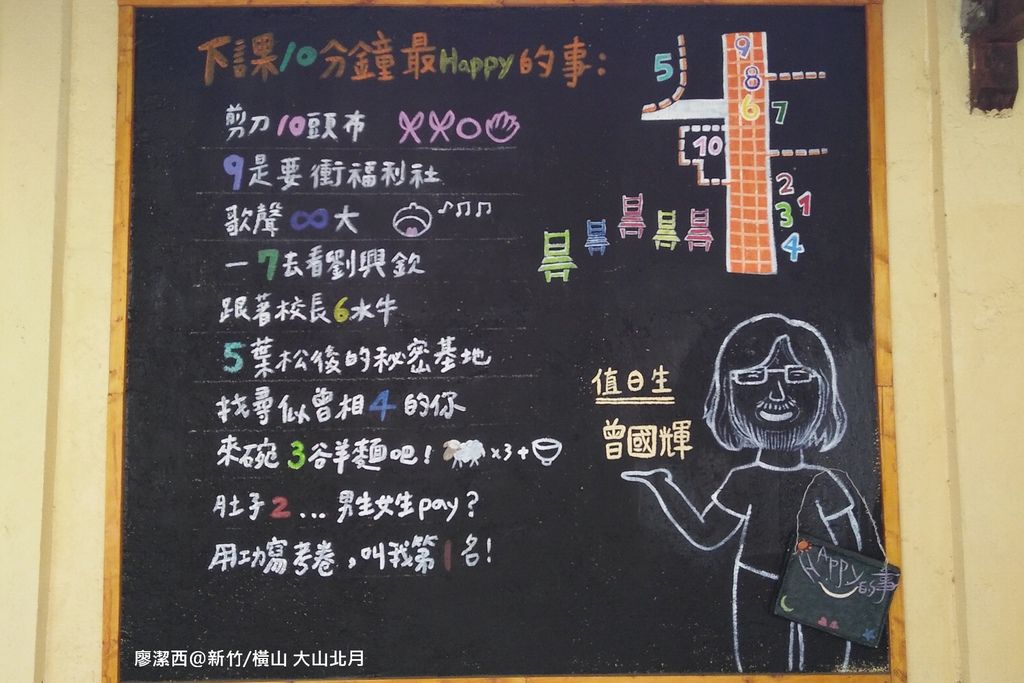 下課10分鐘最Happy的事:
剪刀10頭布
9是要衝福利社
歌聲∞大
一7去看劉興欽
跟著校長6水牛
5葉松後的秘密基地
找尋似曾相4的你
來碗3谷羊麵吧! x3+
肚子2...男生女生pay?
用功寫考卷,叫我第1名!
9
8
5
6
7
10
2
1
3
4
值日生
曾國輝
HAPPY
的事
廖潔西@新竹/橫山 大山北月